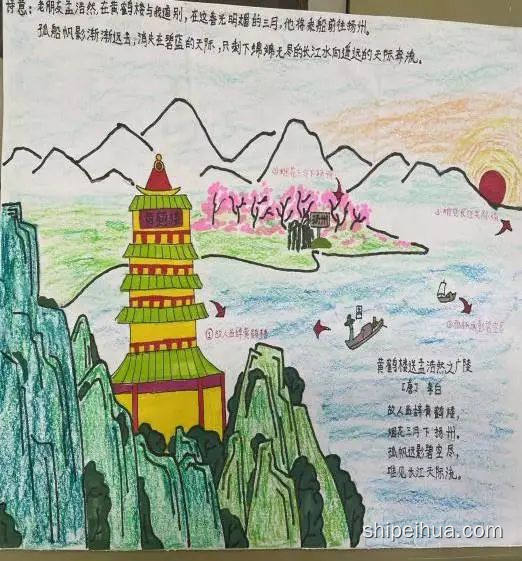 诗意：老朋友孟浩然，在黄鹤楼与我道别，在这春光明媚的三月，他将乘船前往扬州。
孤船帆影渐渐远去，消失在碧蓝的天际，只剩下绵绵无尽的长江水向遥远的天际奔流。
②烟花三月下扬州
黄鹤楼
扬州
④唯见长江天际流
①故人西辞黄鹤楼
③孤帆远影碧空尽
黄鹤楼送孟浩然之广陵
［唐］李白
故人西辞黄鹤楼，
烟花三月下扬州。
孤帆远影碧空尽，
唯见长江天际流。
shipeihua.com